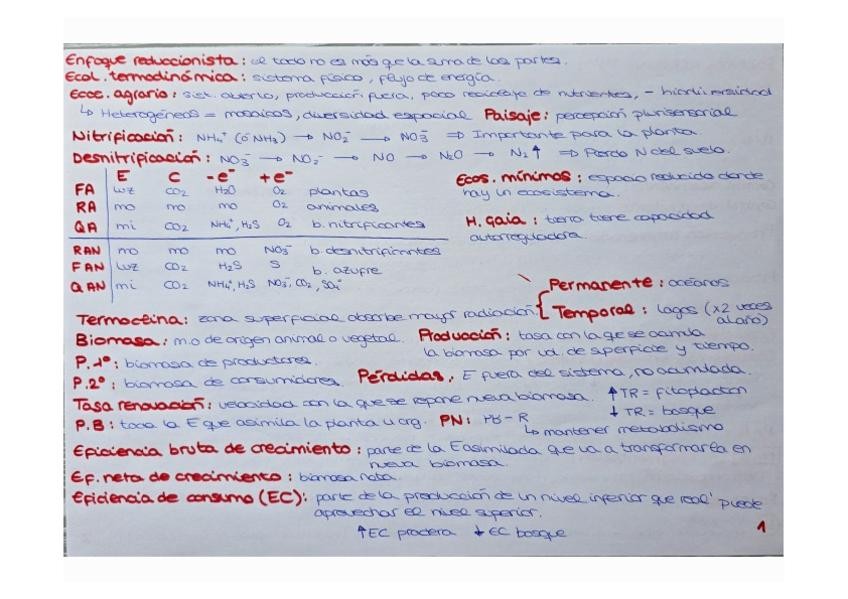 Enfoque reduccionista: el todo no es más que la suma de las partes.
Ecol. termodinámica: sistema físico, flujo de energía.
Ecoc. agrario: sist. abierto, producción fuera, poco reciclaje de nutrientes, - biodiversidad
↳ Heterogéneos = mosaicos, diversidad espacial Paisaje: percepción plurisensorial
Nitrificación: NH₄⁺ (ó NH₃) → NO₂⁻ → NO₃⁻ ⇒ Importante para la planta.
Desnitrificación: NO₃⁻ → NO₂⁻ → NO → N₂O → N₂↑ ⇒ Pierdo N del suelo.
E C -e⁻ +e⁻
FA luz CO₂ H₂O O₂ plantas
RA mo mo mo O₂ animales
QA mi CO₂ NH₄⁺, H₂S O₂ b. nitrificantes
RAN mo mo mo NO₃⁻ b. desnitrificantes
FAN luz CO₂ H₂S S b. azufre
QAN mi CO₂ NH₄⁺, H₂S NO₃⁻, CO₂, SO₄⁼
Ecos. mínimos: espacio reducido donde
hay un ecosistema.
H. Gaia: tierra tiene capacidad
autorreguladora.
Termoclina: zona superficial absorbe mayor radiación.
Permanente: océanos
Temporal: lagos (x2 veces
al año)
Biomasa: m.o de origen animal o vegetal. Producción: tasa con la que se acumula
la biomasa por ud. de superficie y tiempo.
P. 1º: biomasa de productores.
P. 2º: biomasa de consumidores. Pérdidas, E fuera del sistema, no acumulada.
Tasa renovación: velocidad con la que se repone nueva biomasa. ↑TR = fitoplacton
↓TR = bosque
P.B: toda la E que asimila la planta u org. PN: PB - R
↳ mantener metabolismo
Eficiencia bruta de crecimiento: parte de la E asimilada que va a transformarla en
nueva biomasa.
Ef. neta de crecimiento: biomasa neta.
Eficiencia de consumo (EC): parte de la producción de un nivel inferior que real' puede
aprovechar el nivel superior.
↑EC pradera ↓EC bosque
1